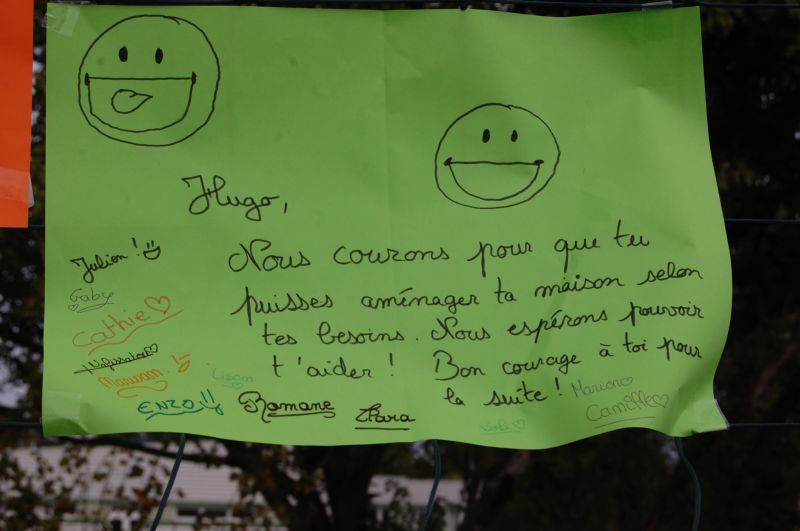 Hugo,
Nous courons pour que tu
puisses aménager ta maison selon
tes besoins. Nous espérons pouvoir
t'aider! Bon courage à toi pour
la suite!
Julien!
Gaby
Cathie
Marwan!
Enzo
Lison
Romane
Marion
Camille